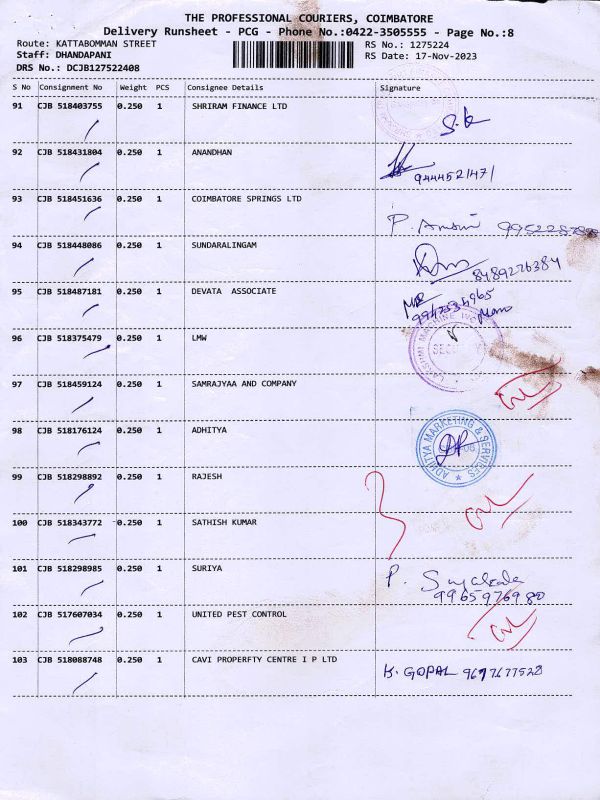 THE PROFESSIONAL COURIERS, COIMBATORE
Delivery Runsheet - PCG - Phone No.:0422-3505555 - Page No.:8
Route: KATTABOMMAN STREET RS No.: 1275224
Staff: DHANDAPANI RS Date: 17-Nov-2023
DRS No.: DCJB127522408
S No Consignment No Weight PCS Consignee Details Signature
91 CJB 518403755 0.250 1 SHRIRAM FINANCE LTD
92 CJB 518431804 0.250 1 ANANDHAN
9444521471
93 CJB 518451636 0.250 1 COIMBATORE SPRINGS LTD
94 CJB 518448086 0.250 1 SUNDARALINGAM
8489276384
95 CJB 518487181 0.250 1 DEVATA ASSOCIATE
96 CJB 518375479 0.250 1 LMW
LAKSHMI MACHINE
97 CJB 518459124 0.250 1 SAMRAJYAA AND COMPANY
98 CJB 518176124 0.250 1 ADHITYA
ADHITYA MARKETING & SERVICES
99 CJB 518298892 0.250 1 RAJESH
100 CJB 518343772 0.250 1 SATHISH KUMAR
101 CJB 518298985 0.250 1 SURIYA
9965976980
102 CJB 517607034 0.250 1 UNITED PEST CONTROL
103 CJB 518088748 0.250 1 CAVI PROPERFTY CENTRE I P LTD
K. GOPAL 9677677528